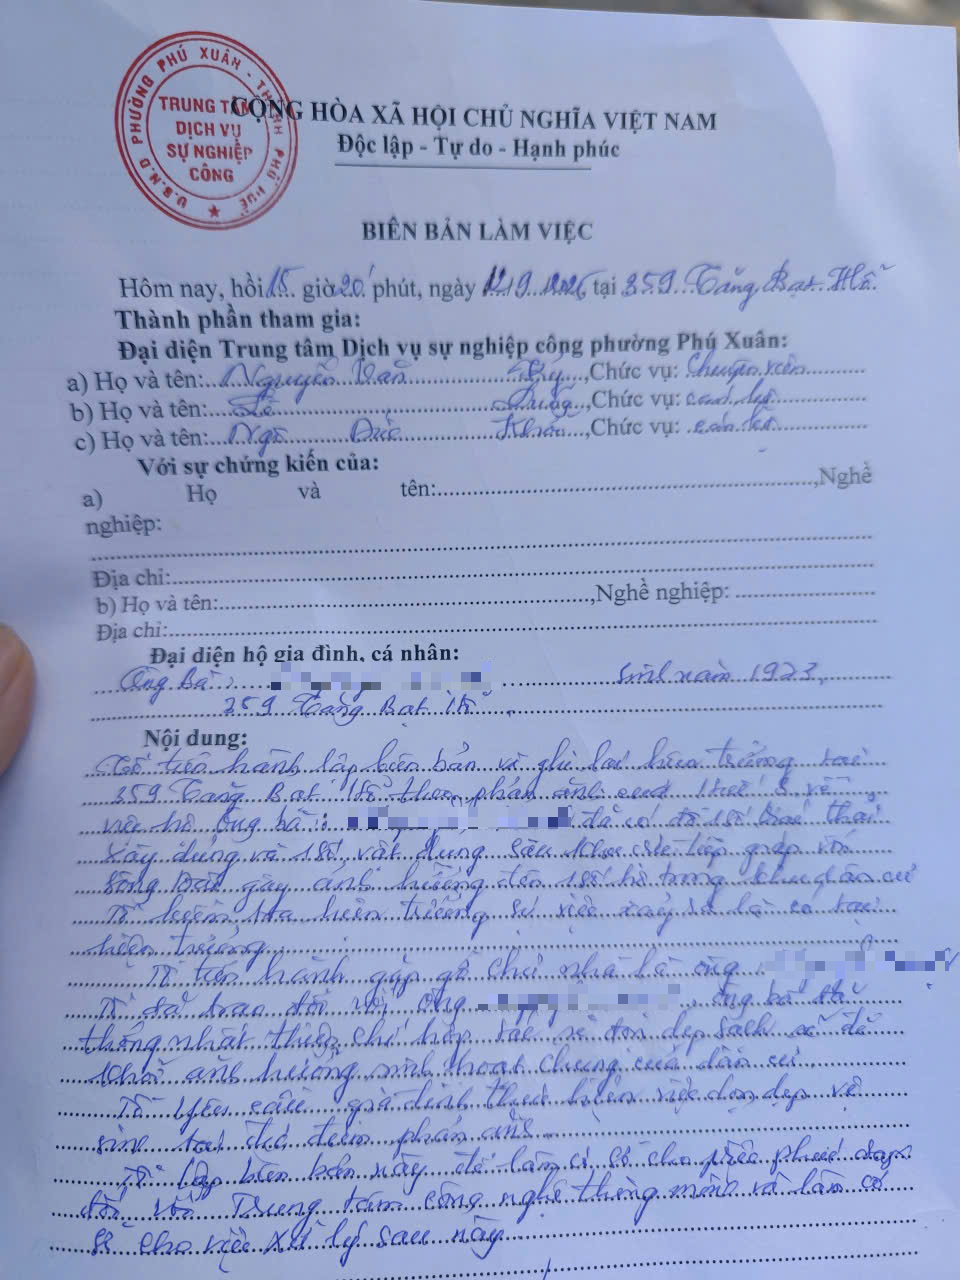 U.B.N.D PHƯỜNG PHÚ XUÂN - THÀNH PHỐ HUẾ
TRUNG TÂM
DỊCH VỤ
SỰ NGHIỆP
CÔNG
CỘNG HÒA XÃ HỘI CHỦ NGHĨA VIỆT NAM
Độc lập - Tự do - Hạnh phúc
BIÊN BẢN LÀM VIỆC
Hôm nay, hồi 15 giờ 20' phút, ngày tại 359 Tăng Bạt Hổ
Thành phần tham gia:
Đại diện Trung tâm Dịch vụ sự nghiệp công phường Phú Xuân:
a) Họ và tên: Nguyễn Văn ,Chức vụ: Chuyên viên
b) Họ và tên: Lê ,Chức vụ: cán bộ
c) Họ và tên: Ngô Đức ,Chức vụ: cán bộ
Với sự chứng kiến của:
a) Họ và tên: ,Nghề
nghiệp:
Địa chỉ:
b) Họ và tên: ,Nghề nghiệp:
Địa chỉ:
Đại diện hộ gia đình, cá nhân:
Ông Bà: sinh năm 1923,
359 Tăng Bạt Hổ.
Nội dung:
Tổ tiến hành lập biên bản và ghi lại hiện trường tại
359 Tăng Bạt Hổ theo phản ánh của về
hộ ông bà: đã có đổ 1 số thải
xây dựng và 1 số vật dụng
sông gây ảnh hưởng đến 1 số hộ trong khu dân cư
Tổ kiểm tra hiện trường sự việc xảy ra là có tại
hiện trường.
Tổ tiến hành gặp gỡ chủ nhà là ông
Tổ đã trao đổi với ông , ông bà đã
thống nhất thiện chí hợp tác sẽ dọn dẹp sạch sẽ để
khỏi ảnh hưởng sinh hoạt chung của dân cư.
Tổ yêu cầu gia đình thực hiện việc dọn dẹp vệ
sinh tại địa điểm phản ánh.
Tổ lập biên bản này để làm cơ sở cho việc phúc đáp
đối với Trung tâm công nghệ thông minh và làm cơ
sở cho việc xử lý sau này